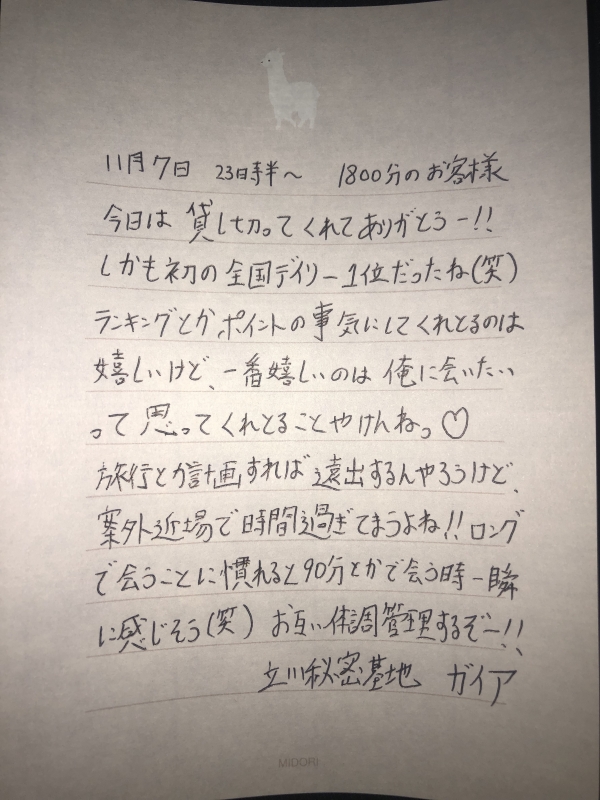 11月7日 23時半～ 1800分のお客様
今日は貸し切ってくれてありがとうー!!
しかも初の全国デイリー1位だったね(笑)
ランキングとかポイントの事気にしてくれとるのは
嬉しいけど、一番嬉しいのは俺に会いたい
って思ってくれとることやけんねっ♡
旅行とか計画すれば遠出するんやろうけど、
案外近場で時間過ぎてまうよね!!ロング
で会うことに慣れると90分とかで会う時一瞬
に感じそう(笑) お互い体調管理するぞー!!
立川秘密基地 ガイア
MIDORI